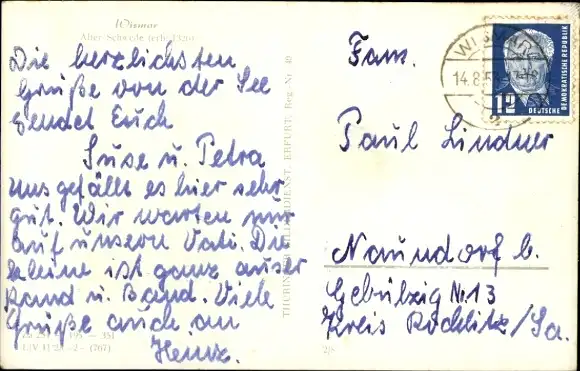 Wismar
Alter Schwede (erb. 1380)
Die herzlichsten
Grüße von der See
sendet Euch
Suse u. Petra
Uns gefällt es hier sehr
gut. Wir warten nur
auf unsern Vati. Die
kleine ist ganz auser
Rand u. Band. Viele
Grüße auch an
Heinz.
(767)
Reg. Nr. 49
2/8
WISMAR
14.8.53
DEUTSCHE
DEMOKRATISCHE REPUBLIK
12
Fam.
Paul Lindner
Naundorf b.
Gehülzig Nr 13
Kreis Rochlitz/Sa.